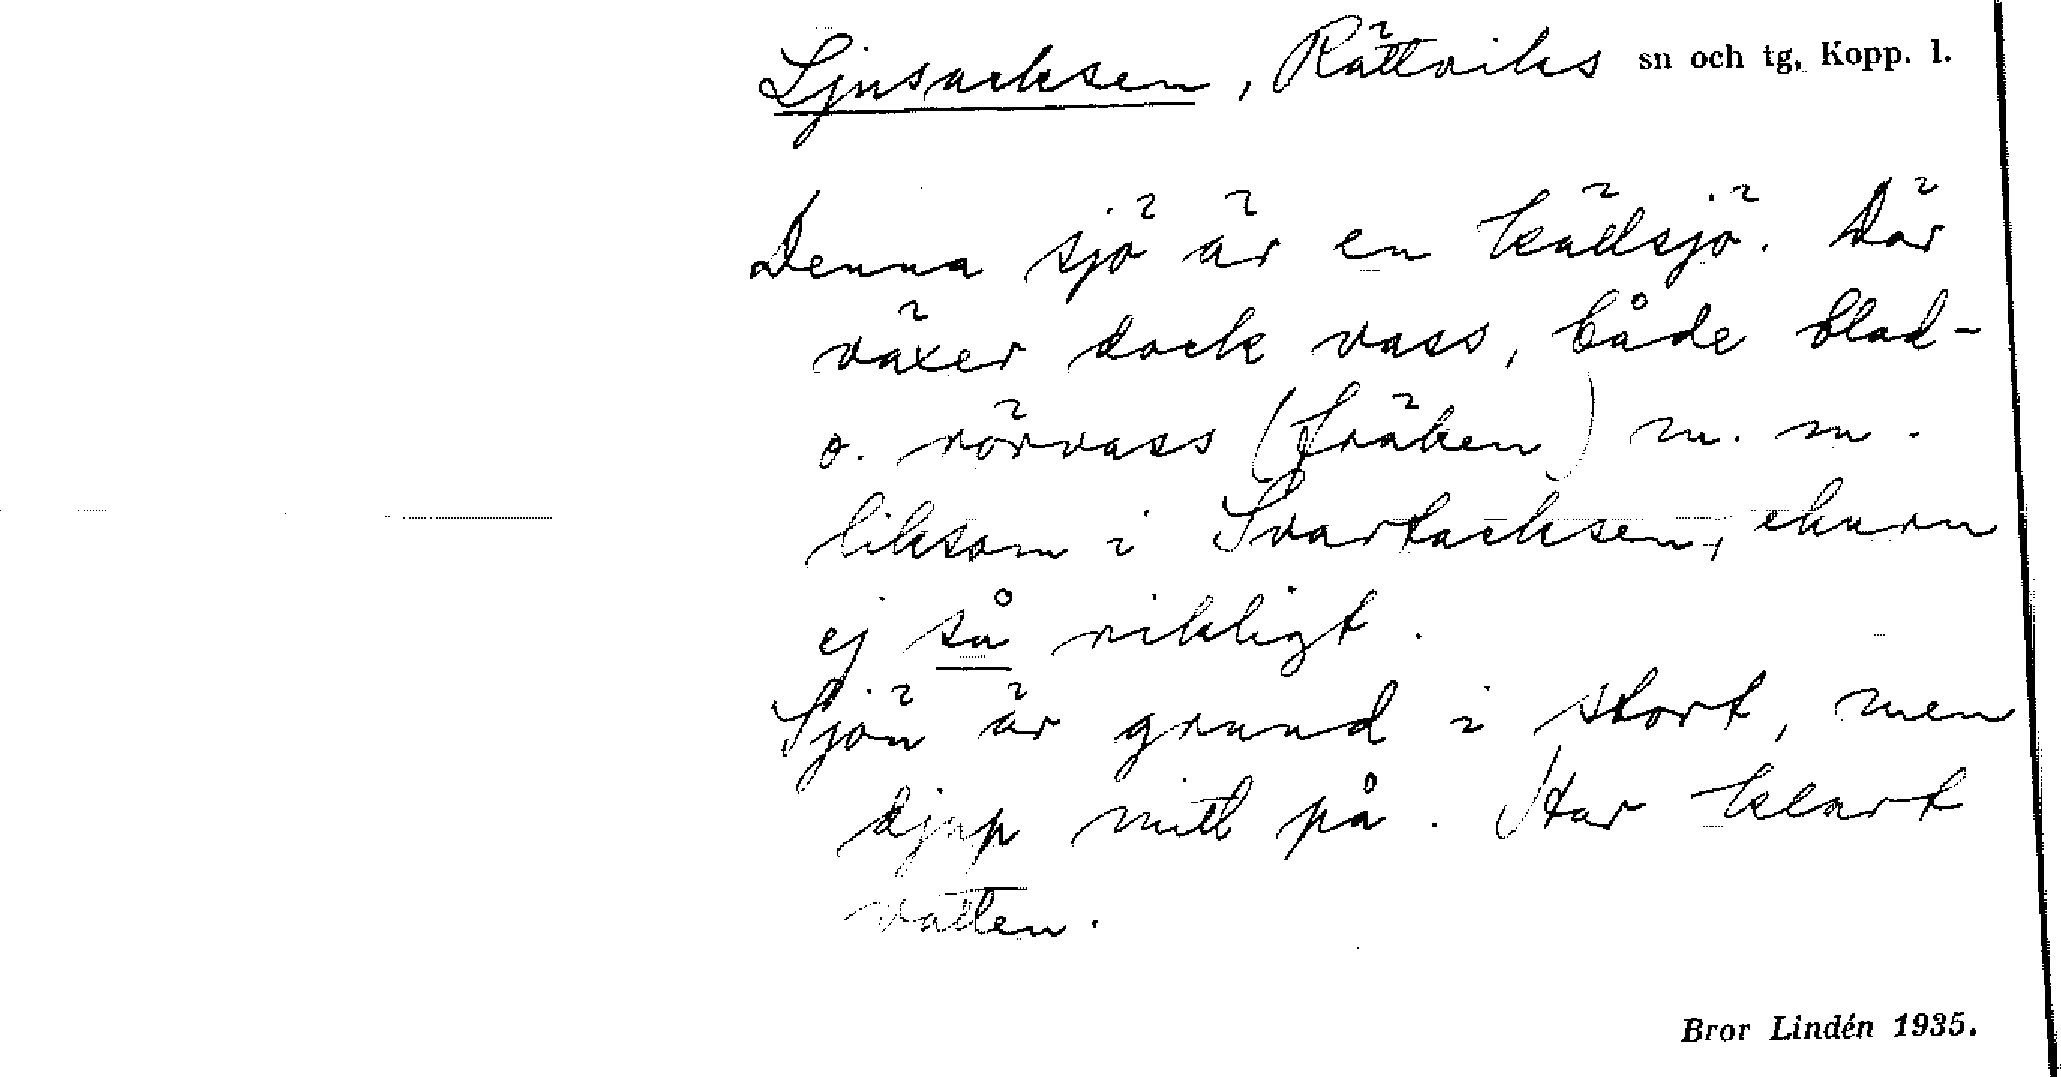 Ljusacksen, Rättviks sn och tg, Kopp. l.
Denna sjö är en källsjö. Där
växer dock vass, både blad-
o. rörvass (fräken) m. m.
liksom i Svartacksen, ehuru
ej så rikligt.
Sjön är grund i stort, men
djup mitt på. Har klart
vatten.
Bror Lindén 1935.